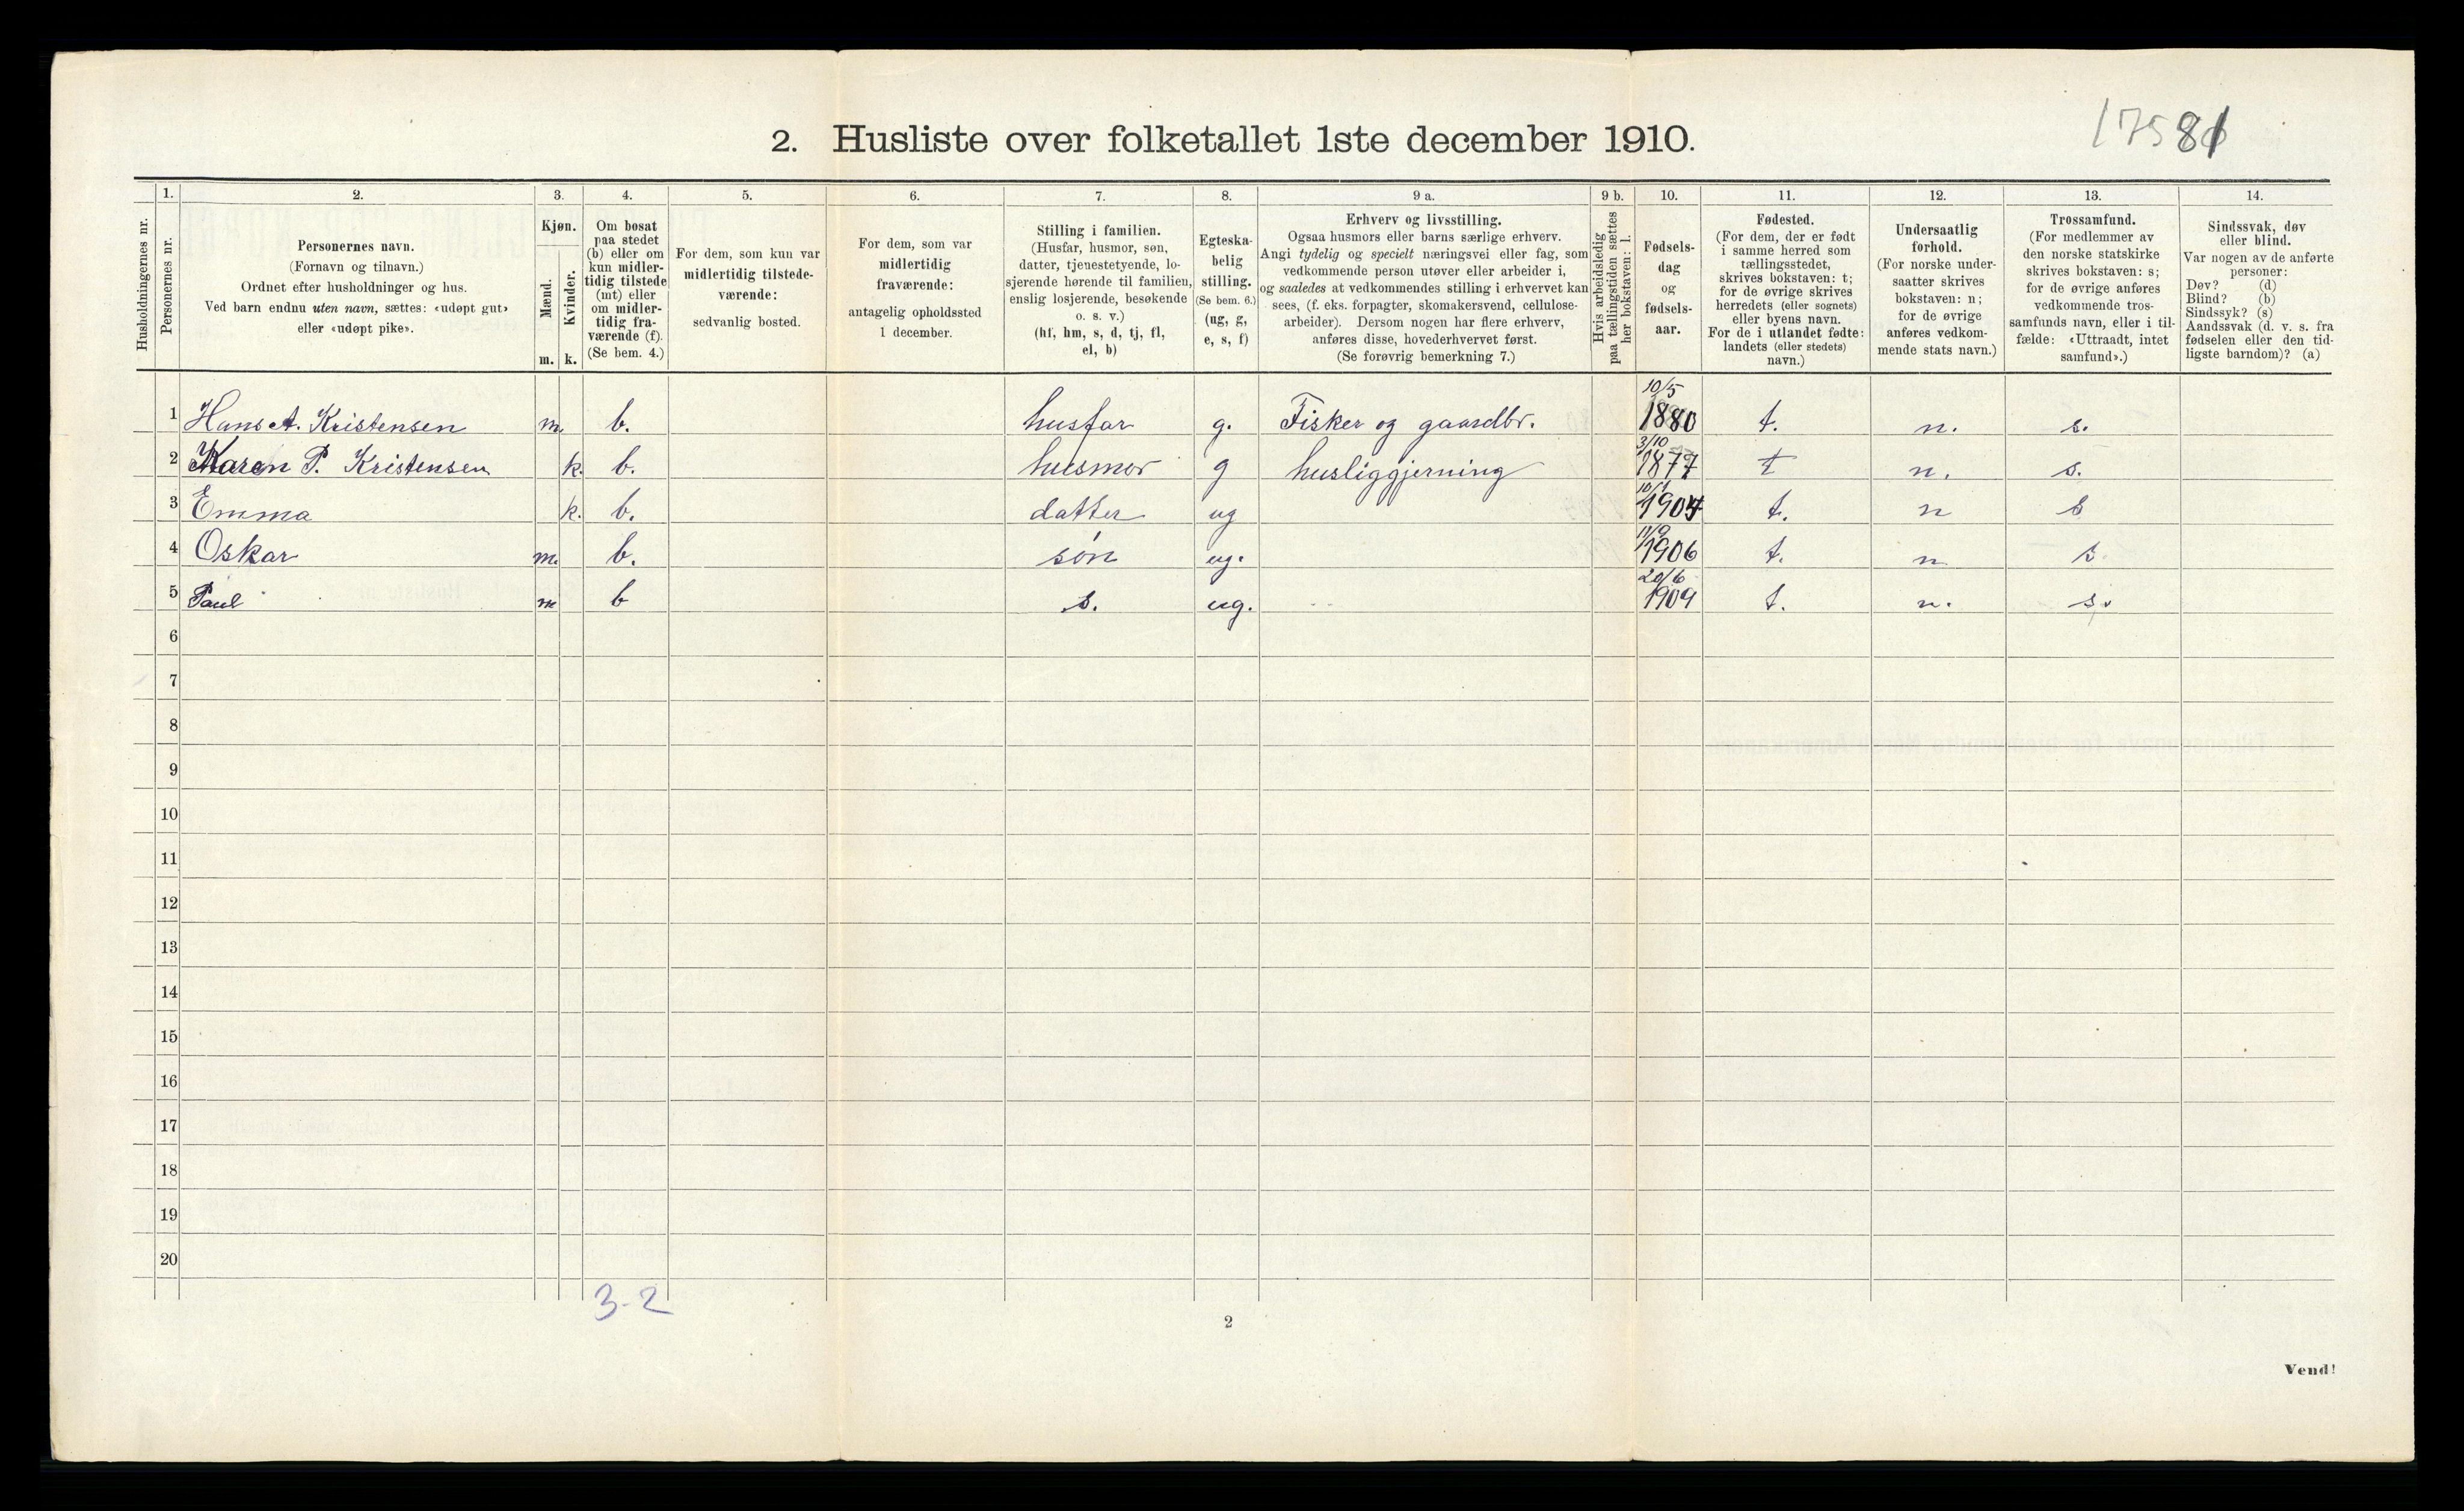 17581
2. Husliste over folketallet 1ste december 1910.
Husholdningernes nr.
1.
Personernes nr.
2.
Personernes navn.
(Fornavn og tilnavn.)
Ordnet efter husholdninger og hus.
Ved barn endnu uten navn, sættes: «udøpt gut»
eller «udøpt pike».
3.
Kjøn.
Mænd.
Kvinder.
m. k.
4.
Om bosat
paa stedet
(b) eller om
kun midler-
tidig tilstede
(mt) eller
om midler-
tidig fra-
værende (f).
(Se bem. 4.)
5.
For dem, som kun var
midlertidig tilstede-
værende:
sedvanlig bosted.
6.
For dem, som var
midlertidig
fraværende:
antagelig opholdssted
1 december.
7.
Stilling i familien.
(Husfar, husmor, søn,
datter, tjenestetyende, lo-
sjerende hørende til familien,
enslig losjerende, besøkende
o. s. v.)
(hf, hm, s, d, tj, fl,
el, b)
8.
Egteska-
belig
stilling.
(Se bem. 6.)
(ug, g,
e, s, f)
9 a.
Erhverv og livsstilling.
Ogsaa husmors eller barns særlige erhverv.
Angi tydelig og specielt næringsvei eller fag, som
vedkommende person utøver eller arbeider i,
og saaledes at vedkommendes stilling i erhvervet kan
sees, (f. eks. forpagter, skomakersvend, cellulose-
arbeider). Dersom nogen har flere erhverv,
anføres disse, hovederhvervet først.
(Se forøvrig bemerkning 7.)
9 b.
Hvis arbeidsledig
paa tællingstiden sættes
her bokstaven: l.
10.
Fødsels-
dag
og
fødsels-
aar.
11.
Fødested.
(For dem, der er født
i samme herred som
tællingsstedet,
skrives bokstaven: t;
for de øvrige skrives
herredets (eller sognets)
eller byens navn.
For de i utlandet fødte:
landets (eller stedets)
navn.)
12.
Undersaatlig
forhold.
(For norske under-
saatter skrives
bokstaven: n;
for de øvrige
anføres vedkom-
mende stats navn.)
13.
Trossamfund.
(For medlemmer av
den norske statskirke
skrives bokstaven: s;
for de øvrige anføres
vedkommende tros-
samfunds navn, eller i til-
fælde: «Uttraadt, intet
samfund».)
14.
Sindssvak, døv
eller blind.
Var nogen av de anførte
personer:
Døv? (d)
Blind? (b)
Sindssyk? (s)
Aandssvak (d. v. s. fra
fødselen eller den tid-
ligste barndom)? (a)
1 Hans A. Kristensen m. b. husfar g. Fisker og gaardbr. 10/5 1880 t. n. s.
2 Karen P. Kristensen k. b. husmor g husliggjerning 3/10 1877 t n. s.
3 Emma k. b. datter ug 1904 t. n s
4 Oskar m. b. søn ug. 1906 t. n s.
5 Paul m b s. ug. 20/6 1909 t. n. s.
6
7
8
9
10
11
12
13
14
15
16
17
18
19
20
3-2
2
Vend!